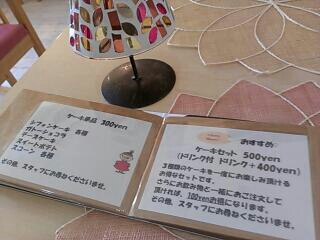 ケーキ単品 300yen
シフォンケーキ 各種
ガトーショコラ
チーズケーキ 各種
スイートポテト
スコーン 各種
その他、スタッフにお尋ねくださいませ。
おすすめ
ケーキセット 500yen
(ドリンク付 ドリンク+400yen)
3種類のケーキを一度にお楽しみ頂ける
お得なセットです。
さらにお飲み物と一緒にご注文して
頂ければ、100yenお得になります。
その他、スタッフにお尋ねくださいませ。